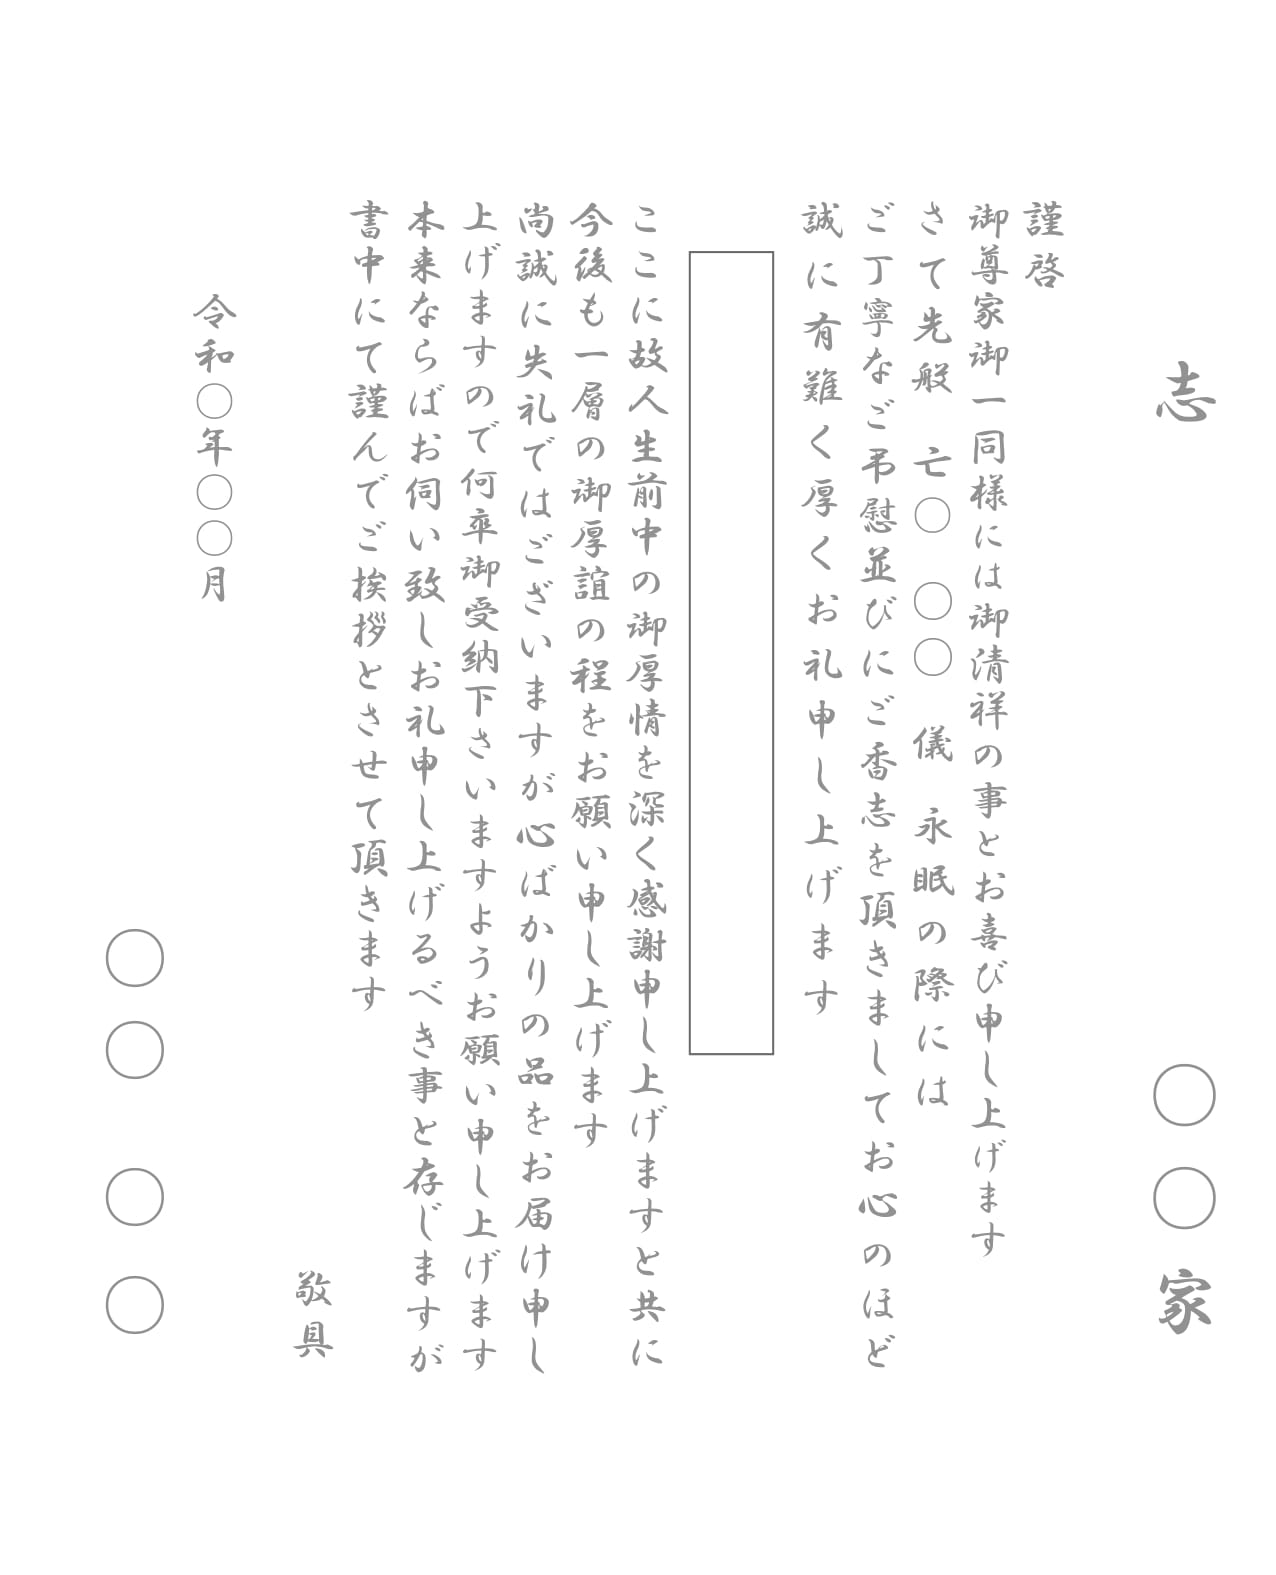 志　〇〇家
謹啓
御尊家御一同様には御清祥の事とお喜び申し上げます
さて先般　亡〇　〇〇　儀　永眠の際には
ご丁寧なご弔慰並びにご香志を頂きましてお心のほど
誠に有難く厚くお礼申し上げます
ここに故人生前中の御厚情を深く感謝申し上げますと共に
今後も一層の御厚誼の程をお願い申し上げます
尚誠に失礼ではございますが心ばかりの品をお届け申し
上げますので何卒御受納下さいますようお願い申し上げます
本来ならばお伺い致しお礼申し上げるべき事と存じますが
書中にて謹んでご挨拶とさせて頂きます
敬具
令和〇年〇〇月
〇〇　〇〇